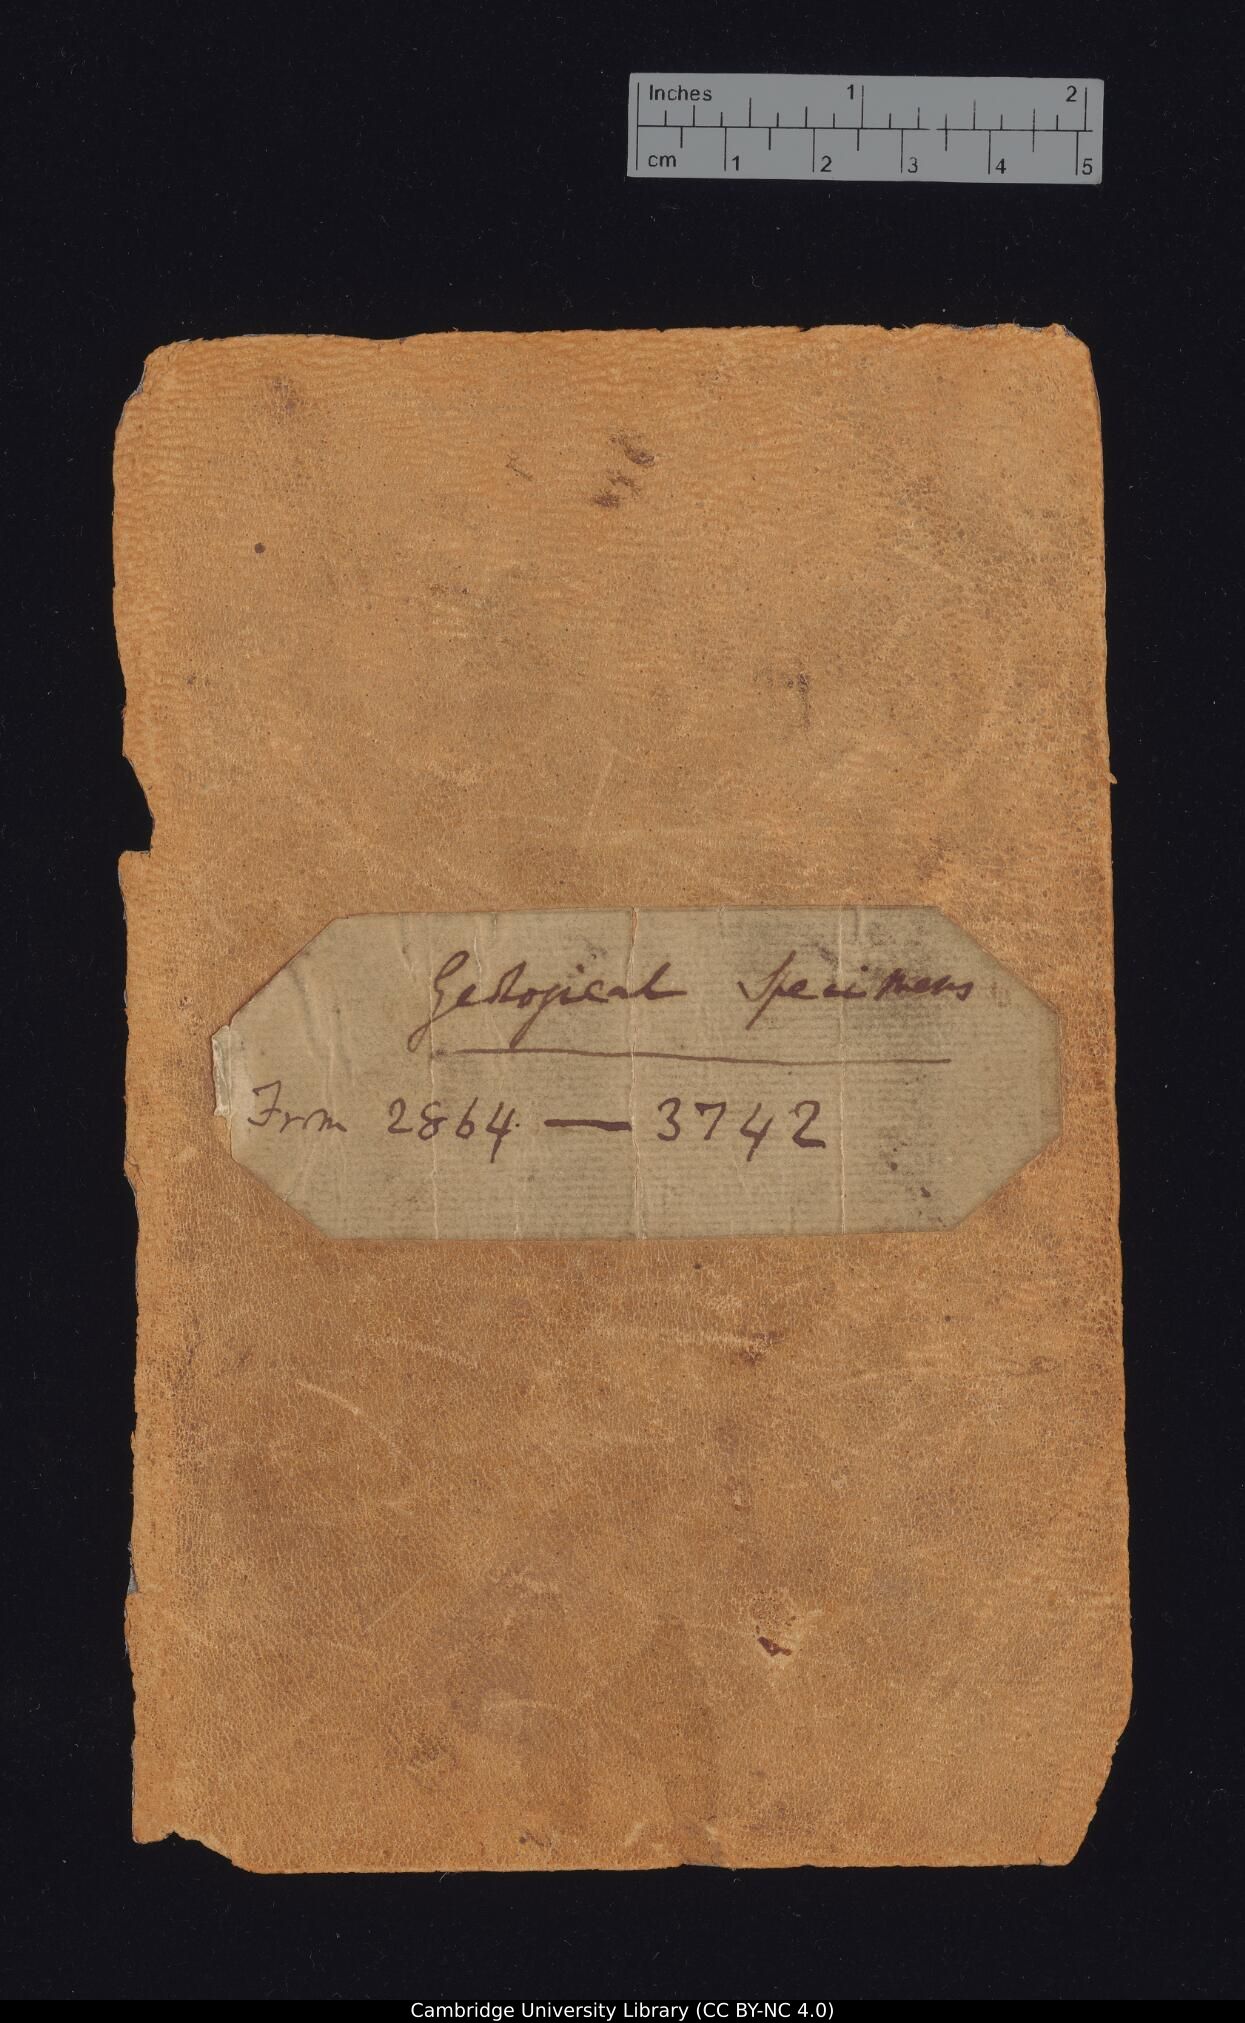 Inches 1 2
cm 1 2 3 4 5
Geological Specimens
From 2864 — 3742
Cambridge University Library (CC BY-NC 4.0)